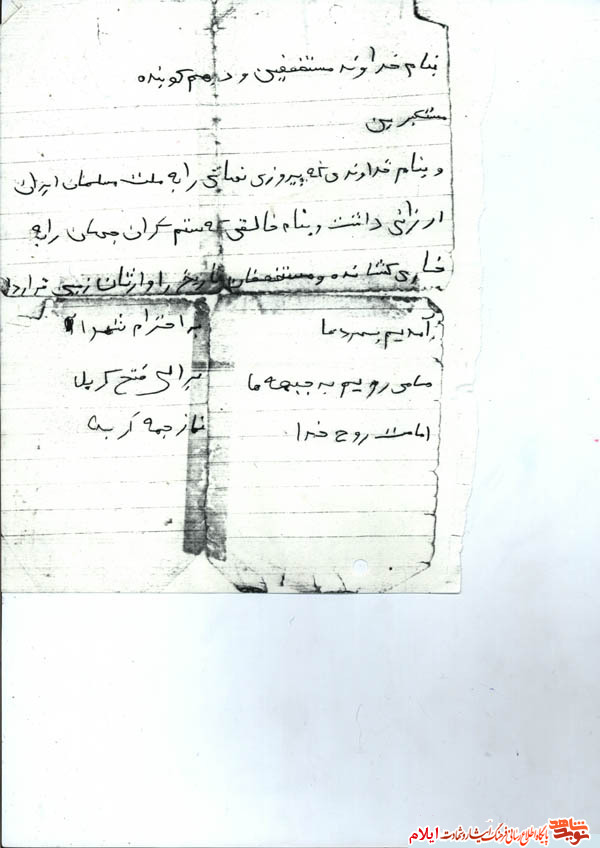 بنام خداوند مستضعفین و درهم کوبنده
مستکبرین
و بنام خداوندی که پیروزی نهائی را به ملت مسلمان ایران
ارزانی داشت و بنام خالقی که ستم گران جهان را به
خاری کشانده و مستضعفان تاریخ را وارثان زمین قرار داد
برآمدیم بسردما به احترام شهدا
مامی رویم به جبهه ها برای فتح کربلا
امامت روح خدا نماز جمعه کربلا
نوید شاهد
پایگاه اطلاع رسانی فرهنگ ایثار و شهادت ایلام